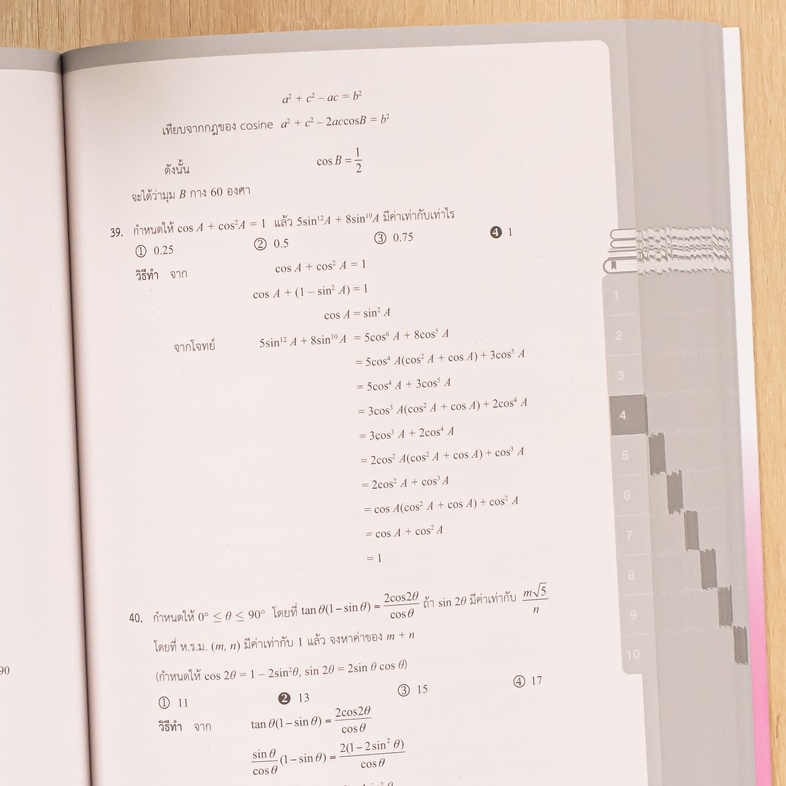 a² + c² – ac = b²
เทียบจากกฎของ cosine a² + c² – 2accosB = b²
ดังนั้น cos B = 1/2
จะได้ว่ามุม B กาง 60 องศา
39. กำหนดให้ cos A + cos²A = 1 แล้ว 5sin¹²A + 8sin¹⁰A มีค่าเท่ากับเท่าไร
① 0.25 ② 0.5 ③ 0.75 ❹ 1
วิธีทำ จาก cos A + cos² A = 1
cos A + (1 – sin² A) = 1
cos A = sin² A
จากโจทย์ 5sin¹² A + 8sin¹⁰ A = 5cos⁶ A + 8cos⁵ A
= 5cos⁴ A(cos² A + cos A) + 3cos⁵ A
= 5cos⁴ A + 3cos⁵ A
= 3cos³ A(cos² A + cos A) + 2cos⁴ A
= 3cos³ A + 2cos⁴ A
= 2cos² A(cos² A + cos A) + cos³ A
= 2cos² A + cos³ A
= cos A(cos² A + cos A) + cos² A
= cos A + cos² A
= 1
40. กำหนดให้ 0° ≤ θ ≤ 90° โดยที่ tan θ(1 – sin θ) = 2cos2θ/cos θ ถ้า sin 2θ มีค่าเท่ากับ m√5/n
โดยที่ ห.ร.ม. (m, n) มีค่าเท่ากับ 1 แล้ว จงหาค่าของ m + n
(กำหนดให้ cos 2θ = 1 – 2sin²θ, sin 2θ = 2sin θ cos θ)
① 11 ❷ 13 ③ 15 ④ 17
วิธีทำ จาก tan θ(1 – sin θ) = 2cos2θ/cos θ
sin θ/cos θ (1 – sin θ) = 2(1 – 2sin² θ)/cos θ
90
1
2
3
4
5
6
7
8
9
10